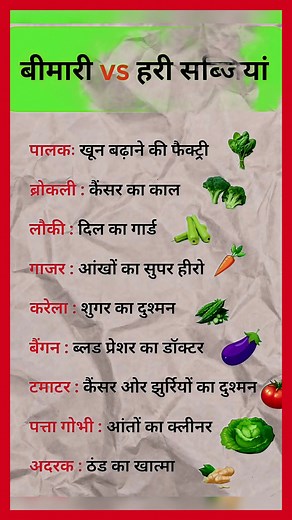 बीमारी vs हरी सब्जियां
पालक: खून बढ़ाने की फैक्ट्री
ब्रोकली : कैंसर का काल
लौकी : दिल का गार्ड
गाजर : आंखों का सुपर हीरो
करेला : शुगर का दुश्मन
बैंगन : ब्लड प्रेशर का डॉक्टर
टमाटर : कैंसर ओर झुर्रियों का दुश्मन
पत्ता गोभी : आंतों का क्लीनर
अदरक : ठंड का खात्मा